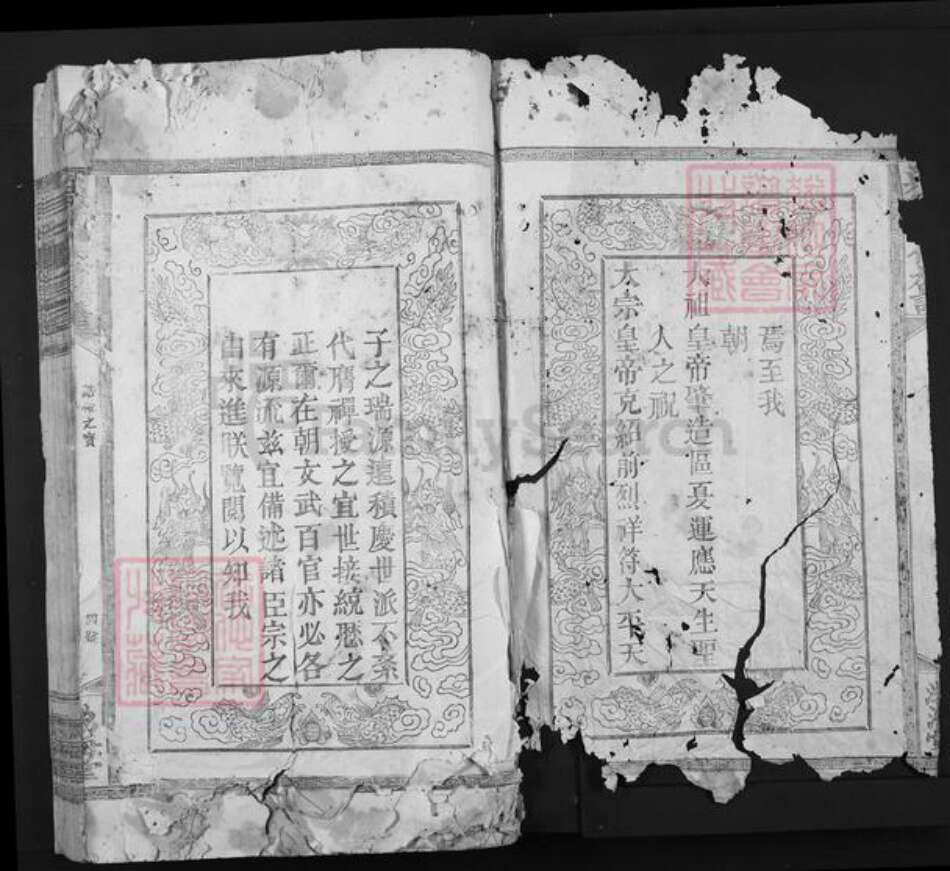 焉至我
朝
太祖皇帝肇造區夏運應天生聖
人之祝
太宗皇帝克紹前烈祥符大平天
子之瑞源遠積慶世派不紊
代膺禪授之宜世接統歷之
正爾在朝文武百官亦必各
有源流茲宜備述諸臣宗之
由來進朕覽閱以知我
FamilySearch